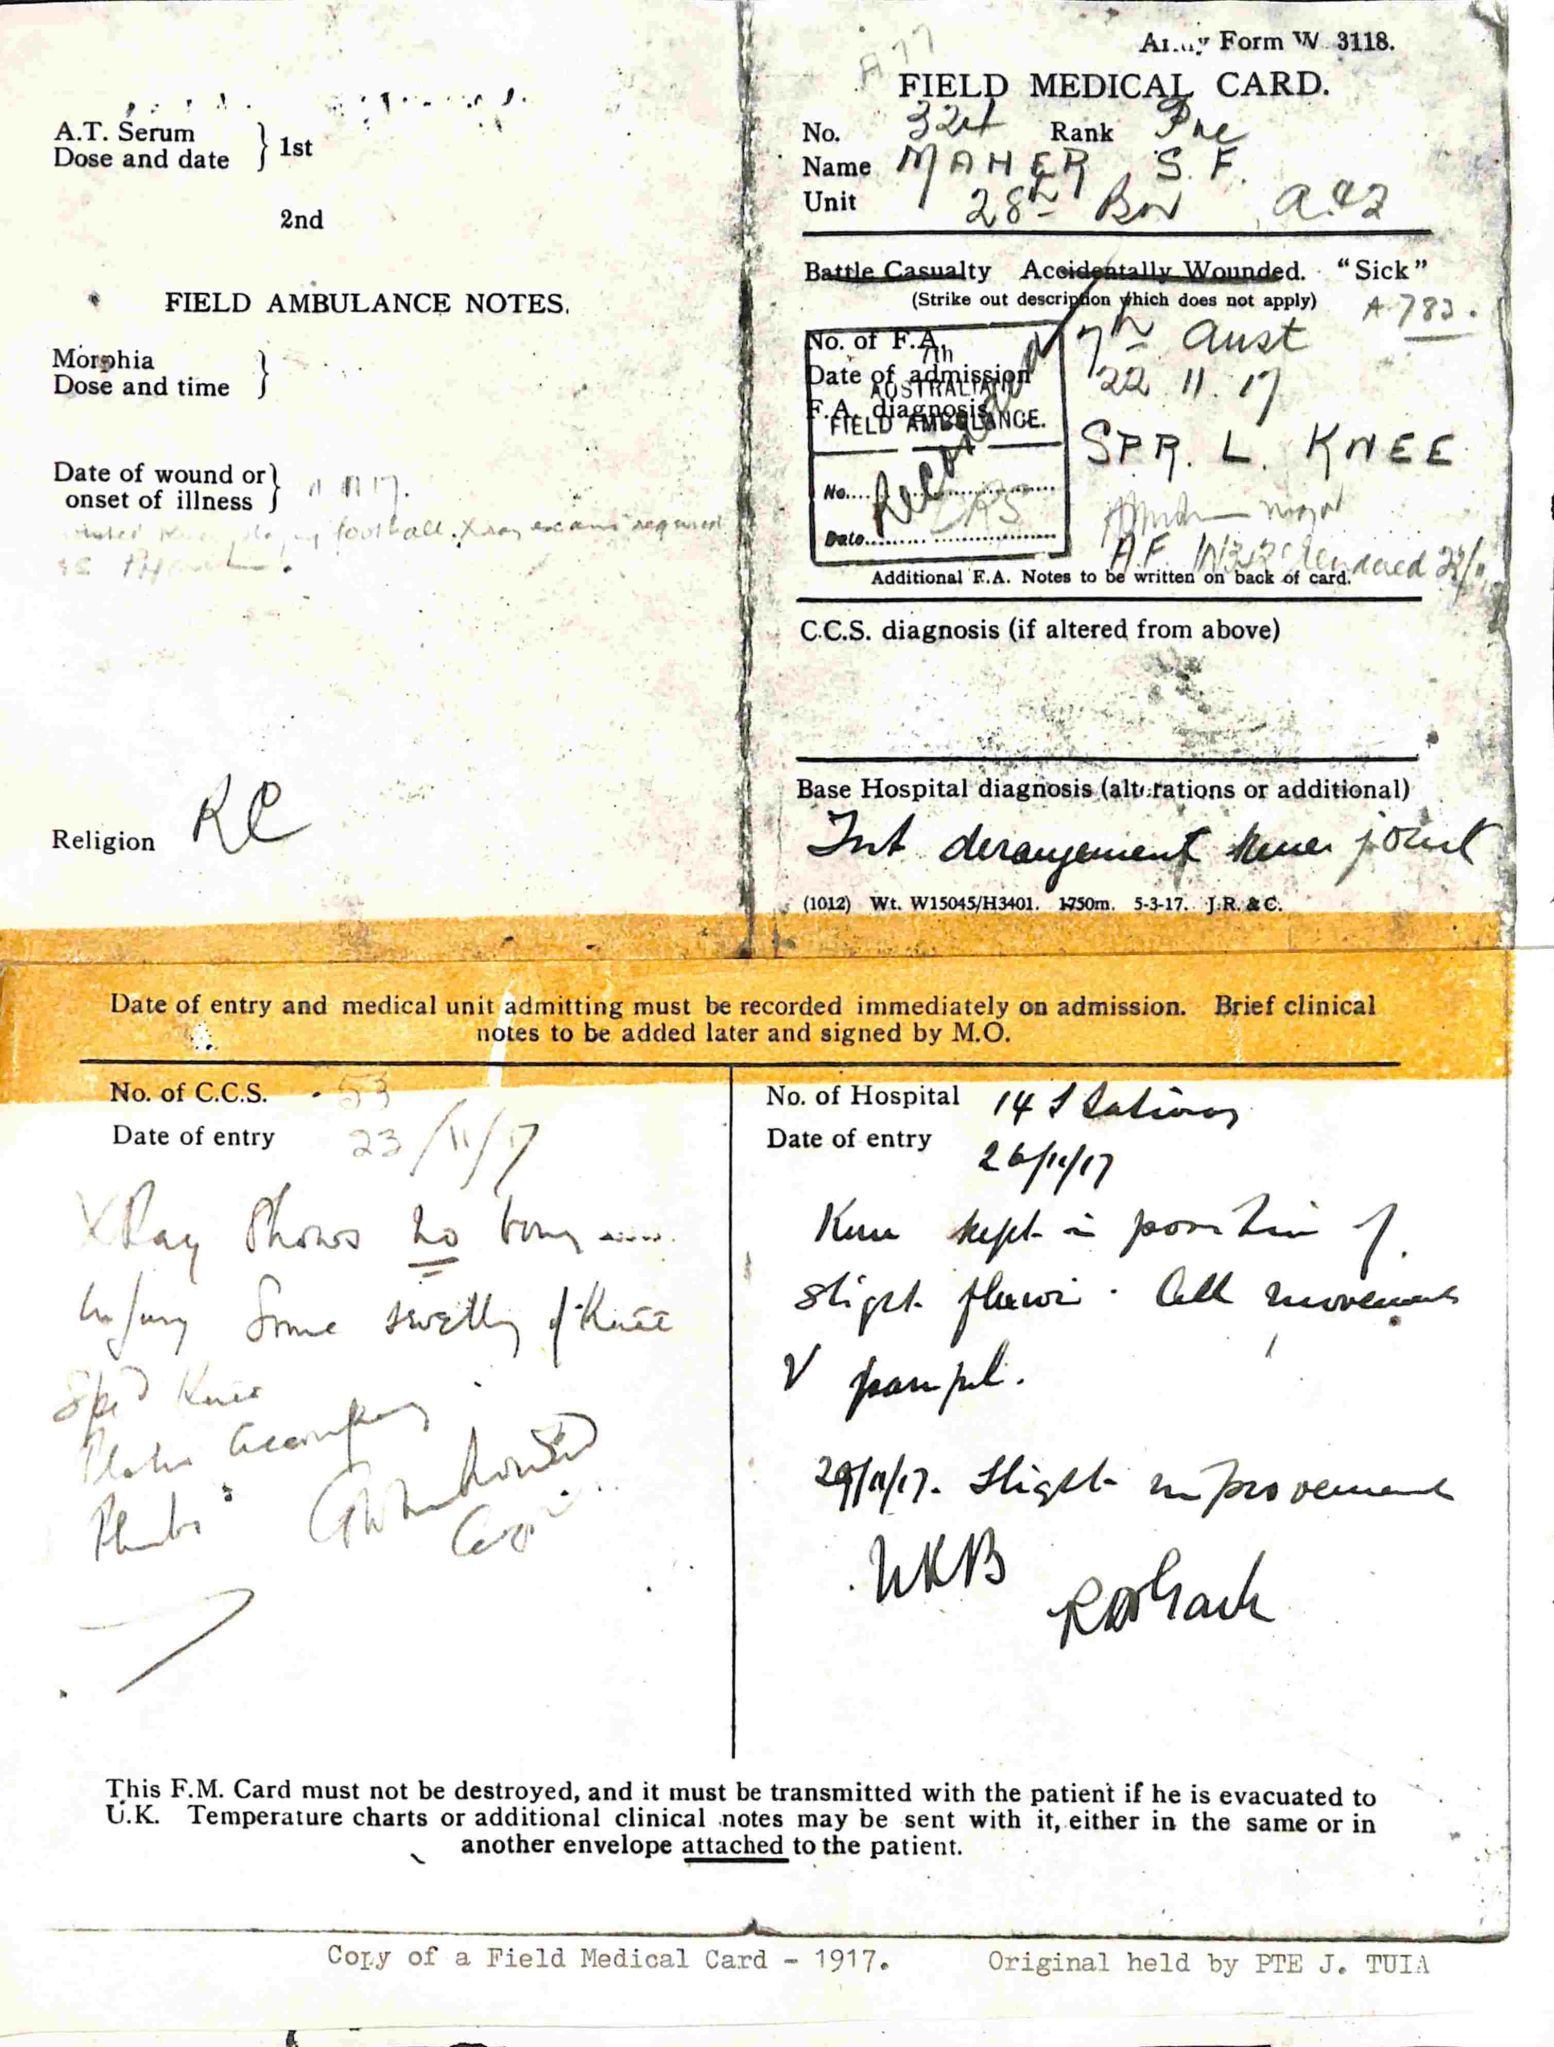 A77
Army Form W. 3118.
FIELD MEDICAL CARD.
No. 324 Rank Pte
Name MAHER S. F.
Unit 28th Bn
Battle Casualty Accidentally Wounded. "Sick"
(Strike out description which does not apply)
A 783.
No. of F.A. 7th Aust
Date of admission 22 11 17
F.A. diagnosis SPR. L. KNEE
7th
AUSTRALIAN
FIELD AMBULANCE.
No.
Date
Additional F.A. Notes to be written on back of card.
C.C.S. diagnosis (if altered from above)
Base Hospital diagnosis (alterations or additional)
Int derangement knee joint
(1012) Wt. W15045/H3401. 1750m. 5-3-17. J.R. & C.
A.T. Serum
Dose and date } 1st
2nd
FIELD AMBULANCE NOTES.
Morphia
Dose and time }
Date of wound or
onset of illness }
football. Xray exam required
Religion RC
Date of entry and medical unit admitting must be recorded immediately on admission. Brief clinical
notes to be added later and signed by M.O.
No. of C.C.S. 53
Date of entry 23/11/17
X Ray Shows no bony
injury Some swelling of Knee
Knee
No. of Hospital 14 Stationary
Date of entry 26/11/17
Knee kept in position of
slight flexion. All movements
V painful.
29/11/17. Slight improvement
This F.M. Card must not be destroyed, and it must be transmitted with the patient if he is evacuated to
U.K. Temperature charts or additional clinical notes may be sent with it, either in the same or in
another envelope attached to the patient.
Copy of a Field Medical Card - 1917. Original held by PTE J. TUIA